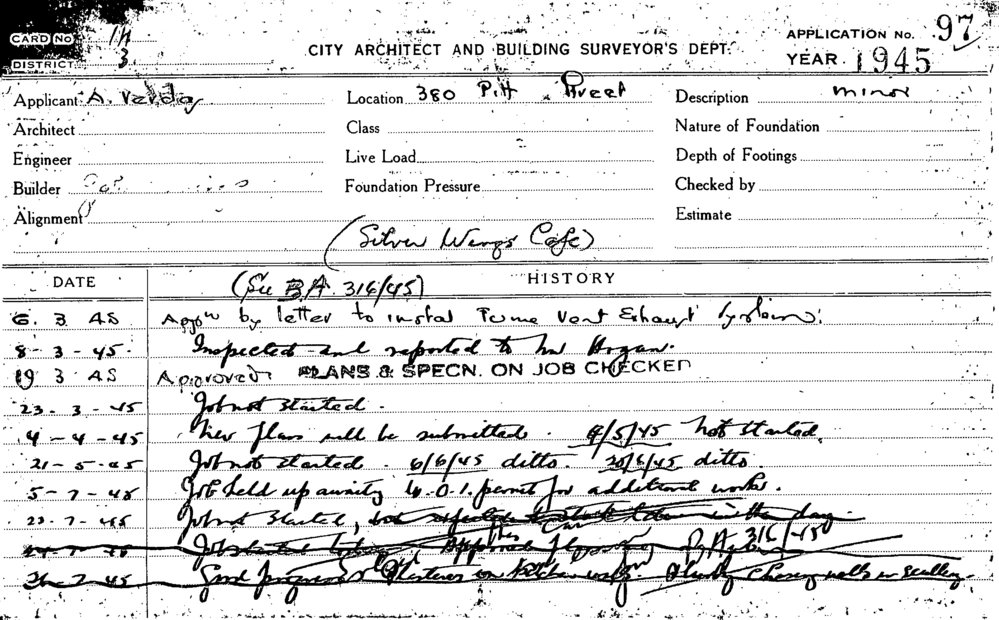 CARD NO 14
CITY ARCHITECT AND BUILDING SURVEYOR'S DEPT.
APPLICATION NO. 97
DISTRICT 3
YEAR 1945
Applicant A. Location 380 Pitt Street Description minor
Architect Class Nature of Foundation
Engineer Live Load Depth of Footings
Builder Foundation Pressure Checked by
Alignment Estimate
(Silver Wings Cafe)
DATE HISTORY
(See B.A. 316/45)
6. 3. 45 Appn by letter to instal Fume Vent Exhaust System.
8-3-45. Inspected and reported to Mr Hogan.
19 3 45 Approved. PLANS & SPECN. ON JOB CHECKED
23-3-45 Job not started.
4-4-45 New plans will be submitted. 4/5/45 not started.
21-5-45 Job not started. 6/6/45 ditto. 20/6/45 ditto.
5-7-45 Job held up awaiting W.O.I. permit for additional works.
23-7-45 Job not started, to start in the day.
Job started today. Approved B.A. 316/45
7-45 Good progress Plasterer on Kitchen walls. chasing walls in scullery.